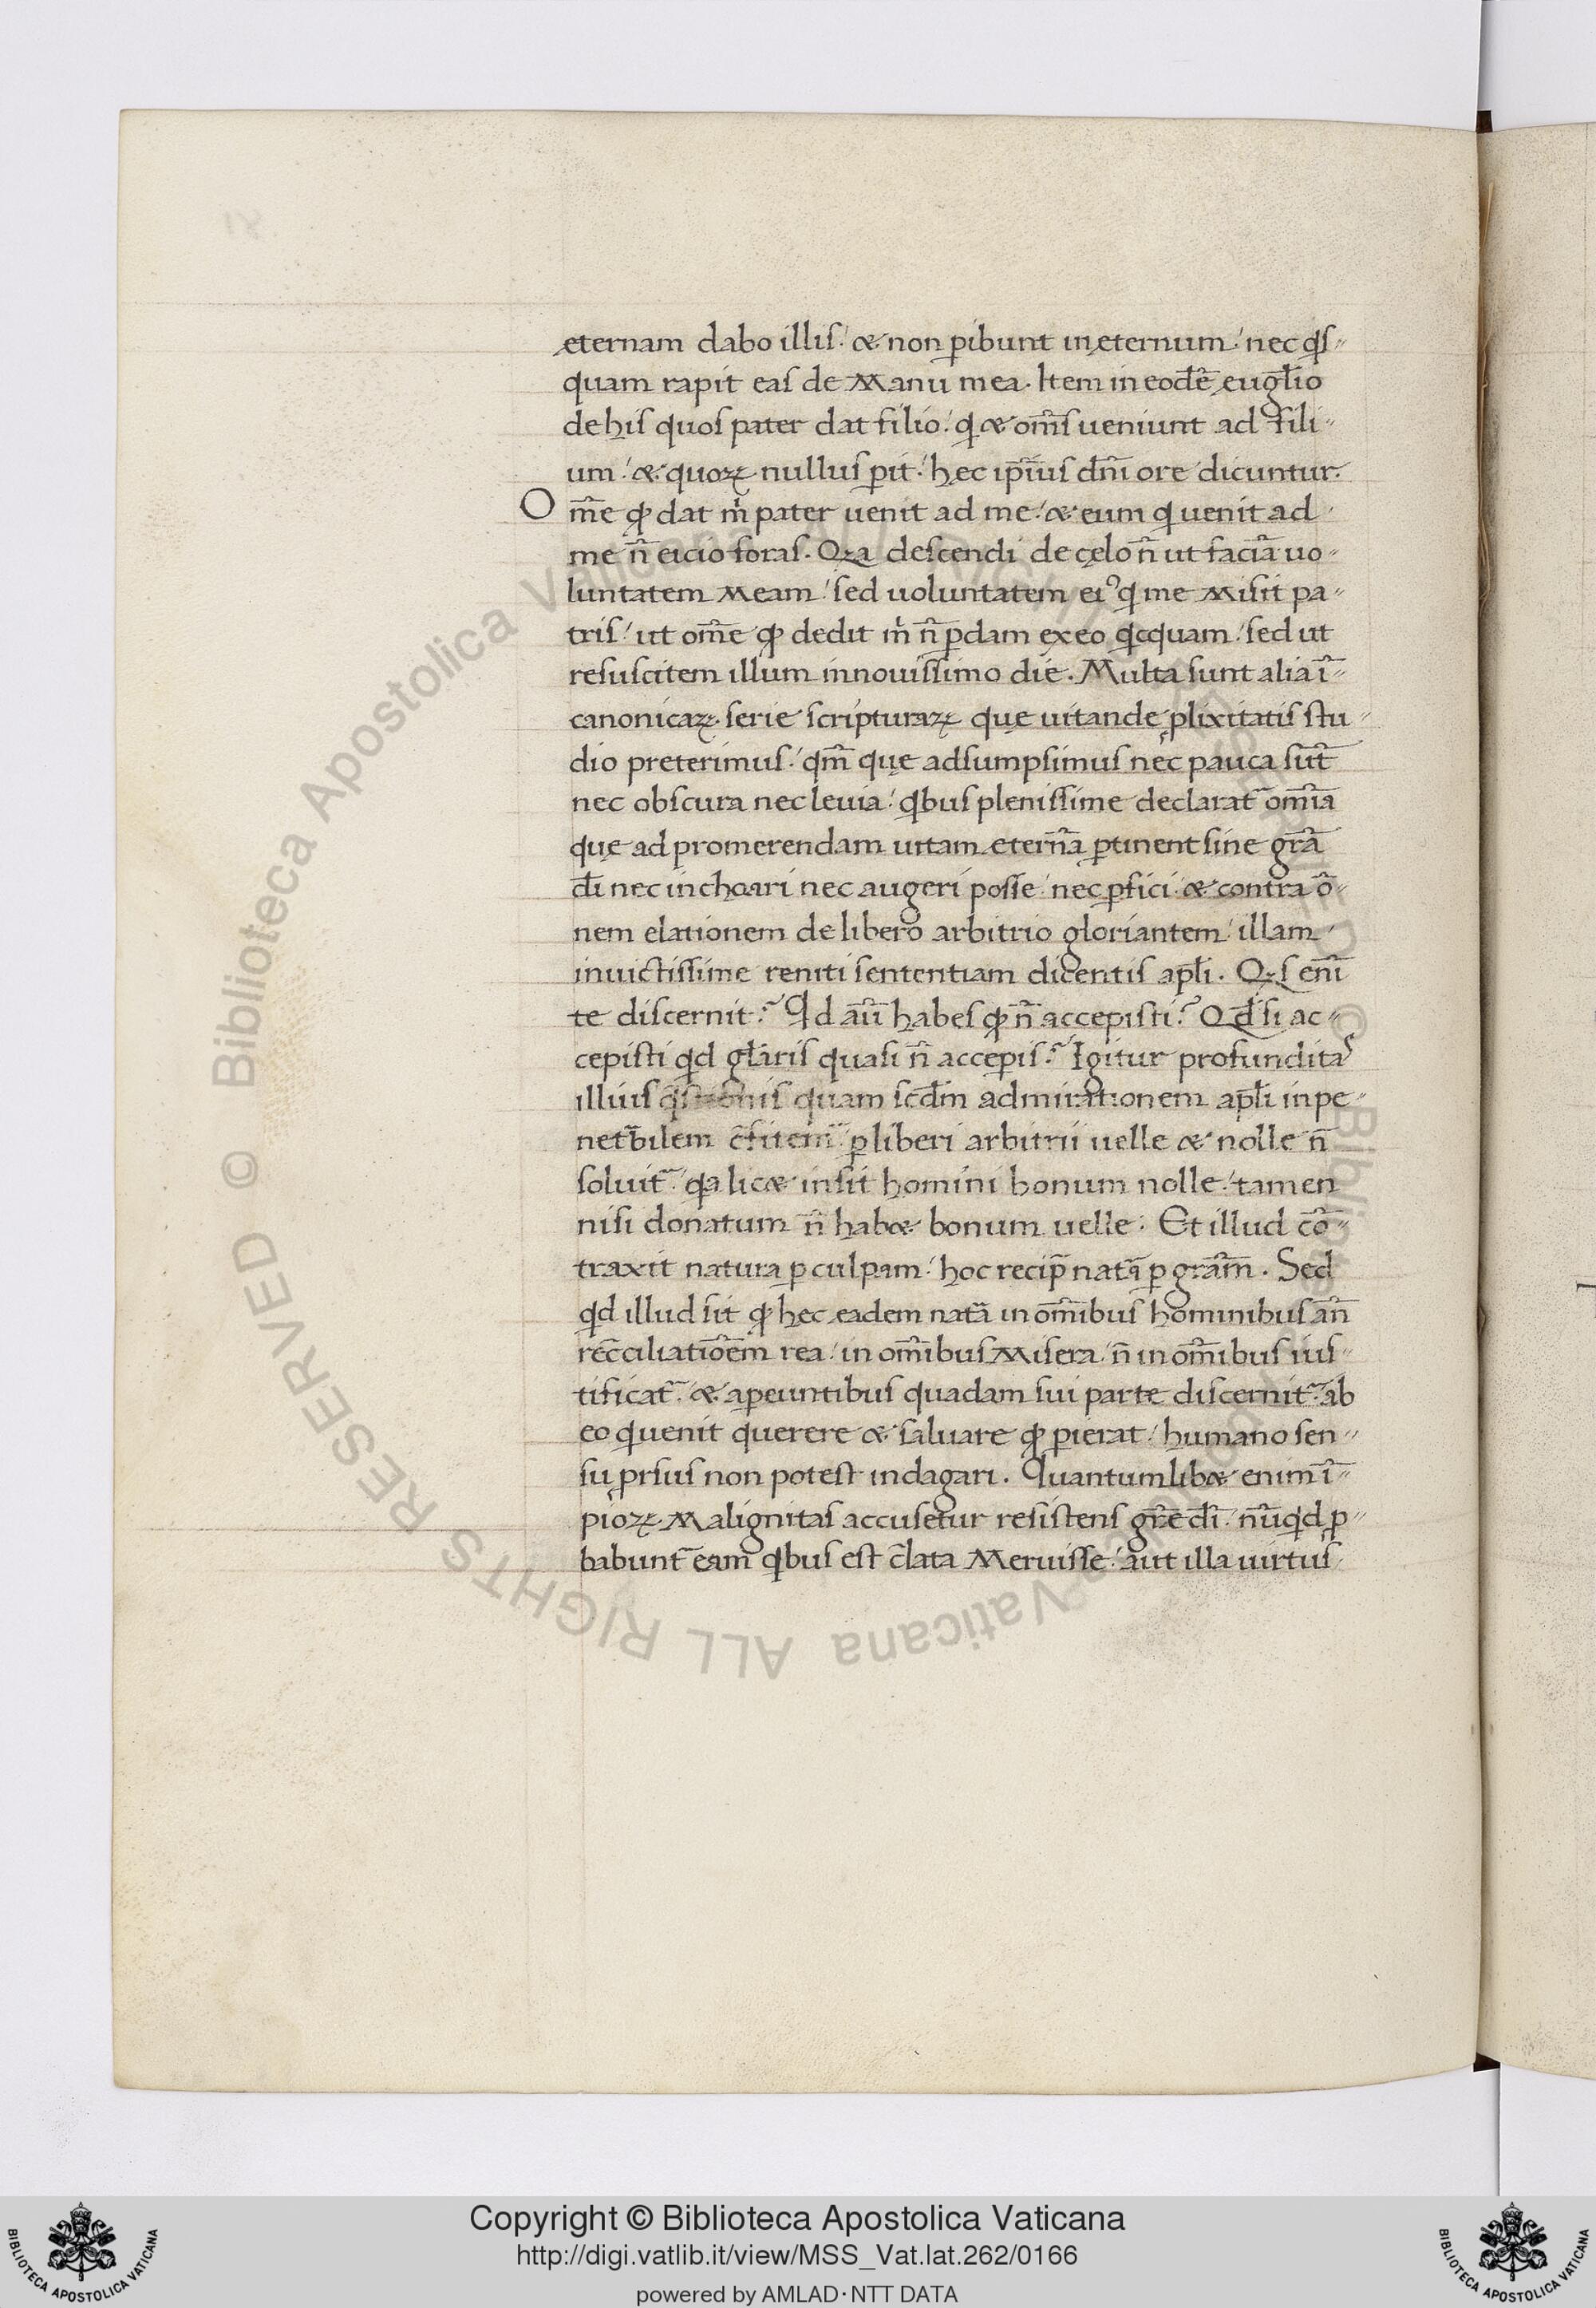 ęternam dabo illis: & non ꝑibunt in ęternum: nec qͥs-
quam rapit eas de Manu mea. Item in eodē euḡlio
de his quos pater dat filio: qͥ & om̄s ueniunt ad fili-
um: & quoꝝ nullus ꝑit: hęc ip̄ius dn̄i ore dicuntur.
Om̄e ꝙ dat m̍ pater uenit ad me: & eum qͥ uenit ad
me n̄ eicio foras. Qꝛa descendi de cęlo n̄ ut faciā uo-
luntatem Meam: sed uoluntatem eiꝰ qͥ me Misit pa-
tris: ut om̄e ꝙ dedit m̍ n̄ ꝑdam ex eo qͥcquam: sed ut
resuscitem illum in nouissimo die. Multa sunt alia ī-
canonicaꝝ serie scripturaꝝ quę uitandę ꝓlixitatis stu-
dio preterimus: qm̄ quę adsumpsimus nec pauca sūt
nec obscura nec leuia: qͥbus plenissime declarat᷑ om̄ia
quę ad promerendam uitam ęternā ꝑtinent sine grā
dī nec inchoari nec augeri posse: nec ꝑfici: & contra ō-
nem elationem de libero arbitrio gloriantem: illam
inuictissime reniti sententiam dicentis apłi. Qꝛs enī
te discernit? Qͥd aū habes ꝙ n̄ accepisti? Qđ si ac-
cepisti qͥd gl̄aris quasi n̄ acceperis? Igitur profunditas
illius q̄stionis quam scd̄m admirationem apłi inpe-
netͣbilem c̄fitem᷑ ꝑ liberi arbitrii uelle & nolle n̄
soluit᷑: qͥa lic& insit homini bonum nolle: tamen
nisi donatum n̄ hab& bonum uelle: Et illud cō-
traxit natura ꝑ culpam: hoc recip̄ natͣ ꝑ grām. Sed
qͥd illud sit ꝙ hęc eadem natͣ in om̄ibus hominibus ān
rec̄ciliatiōem rea: in om̄ibus Misera: n̄ in om̄ibus ius-
tificat᷑: & a ꝑeuntibus quadam sui parte discernit᷑ ab
eo qͥ uenit querere & saluare ꝙ ꝑierat: humano sen-
su ꝓrsus non potest indagari. Quantumlib& enim ī-
pioꝝ Malignitas accusetur resistens gr̄e dī: nūqͥd ꝓ-
babunt᷑ eam qͥbus est c̄lata Meruisse: aut illa uirtus
© Biblioteca Apostolica Vaticana ALL RIGHTS RESERVED
Copyright © Biblioteca Apostolica Vaticana
http://digi.vatlib.it/view/MSS_Vat.lat.262/0166
powered by AMLAD·NTT DATA
BIBLIOTECA APOSTOLICA VATICANA
BIBLIOTECA APOSTOLICA VATICANA